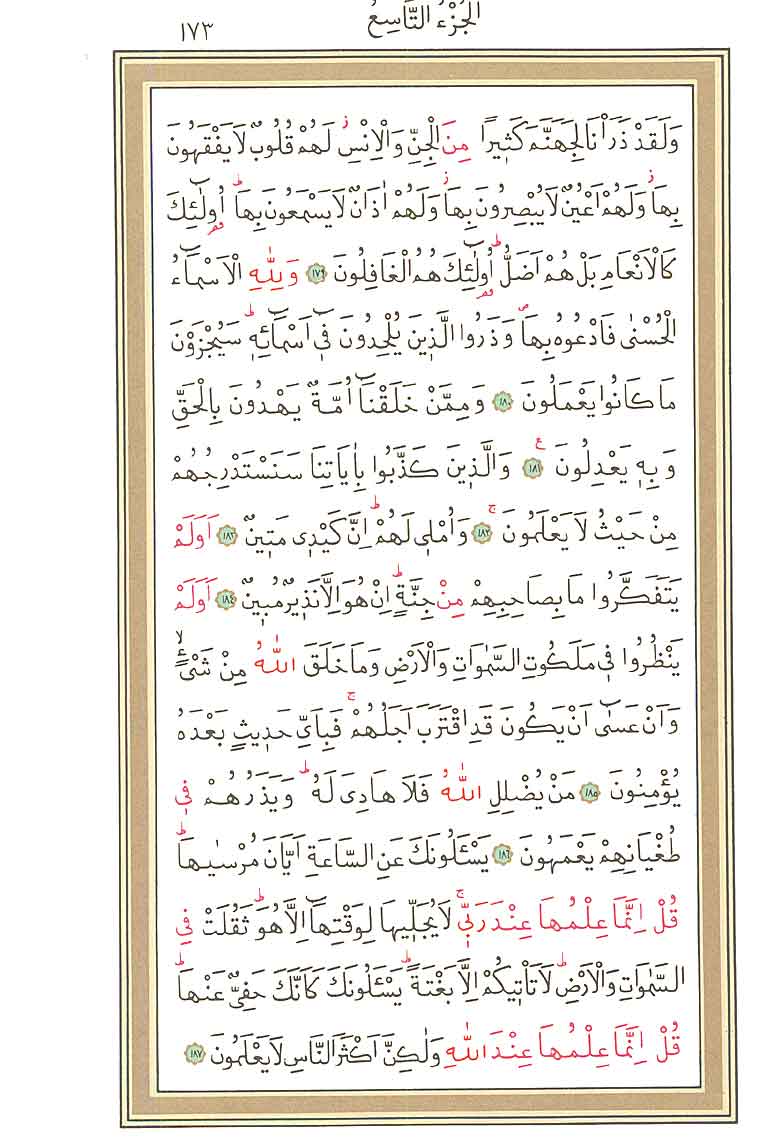 الجُزْءُ التَّاسِعُ
١٧٣
وَلَقَدْ ذَرَأْنَا لِجَهَنَّمَ كَثِيرًا مِنَ الْجِنِّ وَالْاِنْسِۘ لَهُمْ قُلُوبٌ لَا يَفْقَهُونَ
بِهَاۘ وَلَهُمْ اَعْيُنٌ لَا يُبْصِرُونَ بِهَاۘ وَلَهُمْ اٰذَانٌ لَا يَسْمَعُونَ بِهَاۜ اُو۬لٰٓئِكَ
كَالْاَنْعَامِ بَلْ هُمْ اَضَلُّۜ اُو۬لٰٓئِكَ هُمُ الْغَافِلُونَ ﴿١٧٩﴾ وَلِلّٰهِ الْاَسْمَٓاءُ
الْحُسْنٰى فَادْعُوهُ بِهَاۖ وَذَرُوا الَّذِينَ يُلْحِدُونَ فِٓي اَسْمَٓائِهِۜ سَيُجْزَوْنَ
مَا كَانُوا يَعْمَلُونَ ﴿١٨٠﴾ وَمِمَّنْ خَلَقْنَٓا اُمَّةٌ يَهْدُونَ بِالْحَقِّ
وَبِهِ يَعْدِلُونَ ﴿١٨١﴾ وَالَّذِينَ كَذَّبُوا بِاٰيَاتِنَا سَنَسْتَدْرِجُهُمْ
مِنْ حَيْثُ لَا يَعْلَمُونَۚ ﴿١٨٢﴾ وَاُمْلِي لَهُمْۜ اِنَّ كَيْدِي مَتِينٌ ﴿١٨٣﴾ اَوَلَمْ
يَتَفَكَّرُوا مَا بِصَاحِبِهِمْ مِنْ جِنَّةٍۜ اِنْ هُوَ اِلَّا نَذِيرٌ مُبِينٌ ﴿١٨٤﴾ اَوَلَمْ
يَنْظُرُوا فِي مَلَكُوتِ السَّمٰوَاتِ وَالْاَرْضِ وَمَا خَلَقَ اللّٰهُ مِنْ شَيْءٍۙ
وَاَنْ عَسٰٓى اَنْ يَكُونَ قَدِ اقْتَرَبَ اَجَلُهُمْۚ فَبِاَيِّ حَدِيثٍ بَعْدَهُ
يُؤْمِنُونَ ﴿١٨٥﴾ مَنْ يُضْلِلِ اللّٰهُ فَلَا هَادِيَ لَهُۜ وَيَذَرُهُمْ فِي
طُغْيَانِهِمْ يَعْمَهُونَ ﴿١٨٦﴾ يَسْـَٔلُونَكَ عَنِ السَّاعَةِ اَيَّانَ مُرْسٰيهَاۜ
قُلْ اِنَّمَا عِلْمُهَا عِنْدَ رَبِّيۚ لَا يُجَلِّيهَا لِوَقْتِهَٓا اِلَّا هُوَۜ ثَقُلَتْ فِي
السَّمٰوَاتِ وَالْاَرْضِۜ لَا تَأْتِيكُمْ اِلَّا بَغْتَةًۜ يَسْـَٔلُونَكَ كَاَنَّكَ حَفِيٌّ عَنْهَاۜ
قُلْ اِنَّمَا عِلْمُهَا عِنْدَ اللّٰهِ وَلٰكِنَّ اَكْثَرَ النَّاسِ لَا يَعْلَمُونَ ﴿١٨٧﴾